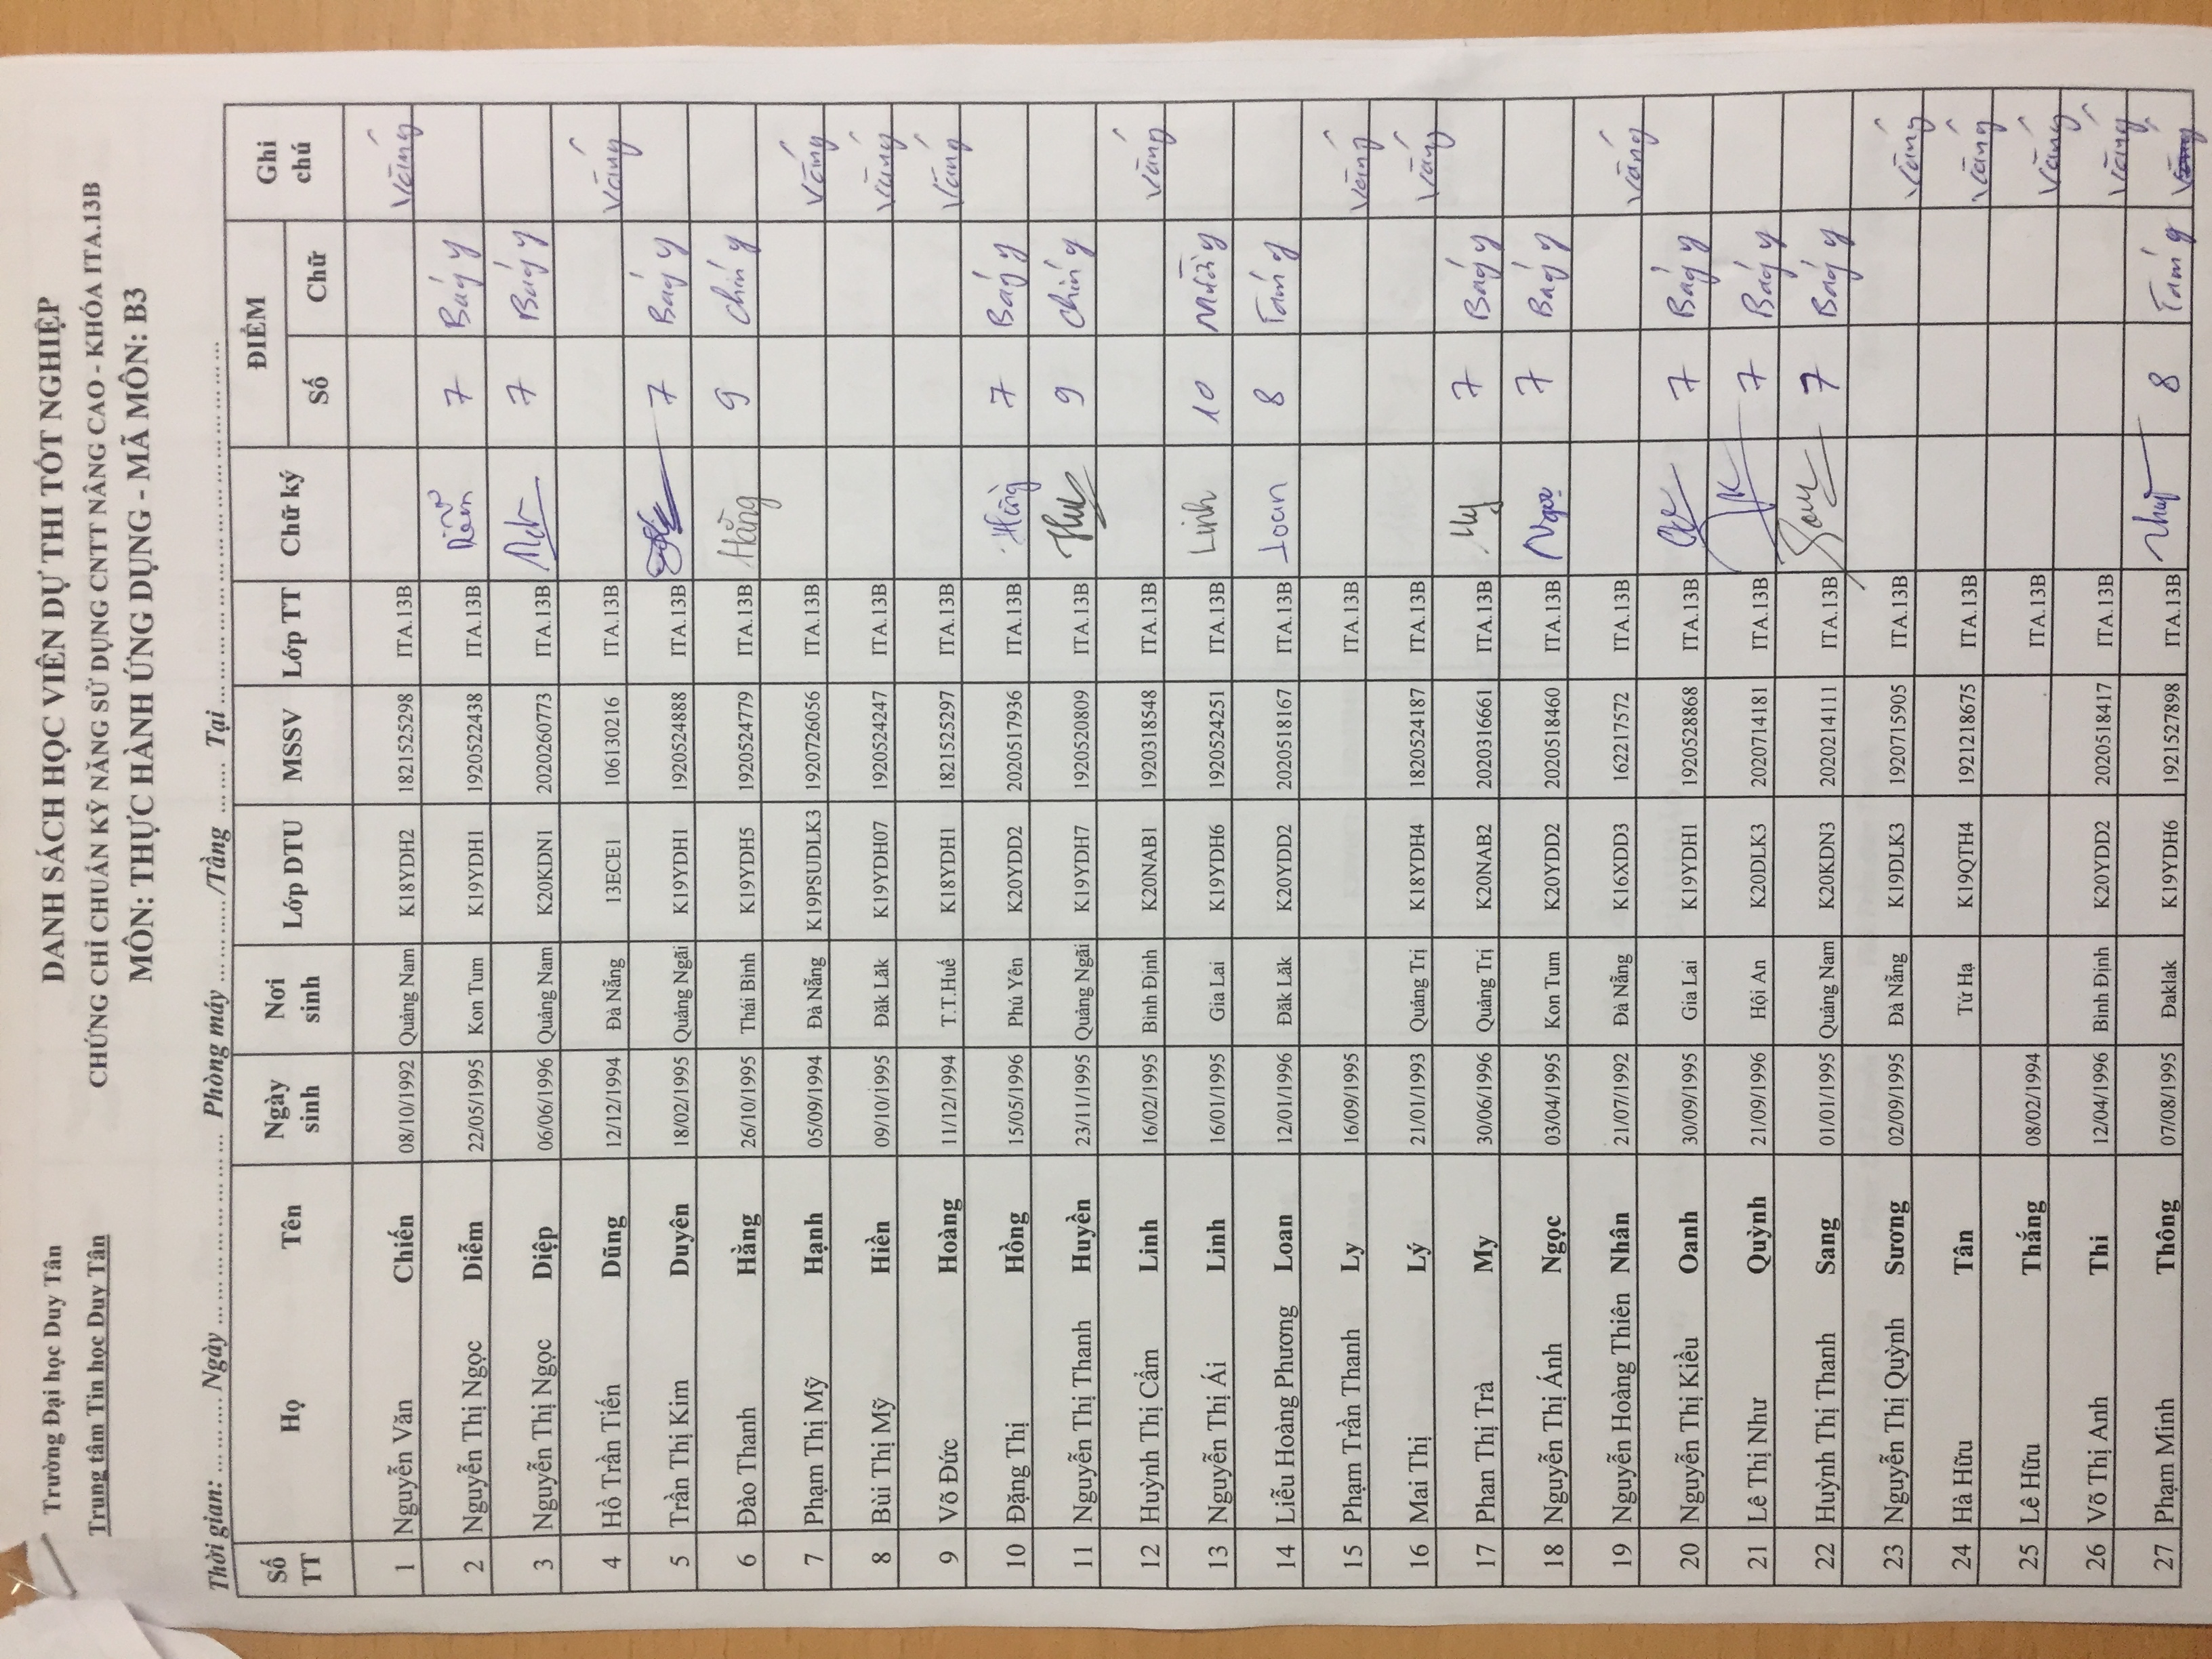 Trường Đại học Duy Tân
Trung tâm Tin học Duy Tân
DANH SÁCH HỌC VIÊN DỰ THI TỐT NGHIỆP
CHỨNG CHỈ CHUẨN KỸ NĂNG SỬ DỤNG CNTT NÂNG CAO - KHÓA ITA.13B
MÔN: THỰC HÀNH ỨNG DỤNG - MÃ MÔN: B3
Thời gian: ... ... ... Ngày ... ... ... ... ... ... ... Phòng máy ... ... ... ... /Tầng ... ... Tại ... ... ... ... ... ... ... ... ... ... ...
Số TT Họ Tên Ngày sinh Nơi sinh Lớp DTU MSSV Lớp TT Chữ ký ĐIỂM Số Chữ Ghi chú
1 Nguyễn Văn Chiến 08/10/1992 Quảng Nam K18YDH2 1821525298 ITA.13B Vắng
2 Nguyễn Thị Ngọc Diễm 22/05/1995 Kon Tum K19YDH1 1920522438 ITA.13B Diễm 7 Bảy
3 Nguyễn Thị Ngọc Diệp 06/06/1996 Quảng Nam K20KDN1 2020260773 ITA.13B 7 Bảy
4 Hồ Trần Tiến Dũng 12/12/1994 Đà Nẵng 13ECE1 106130216 ITA.13B Vắng
5 Trần Thị Kim Duyên 18/02/1995 Quảng Ngãi K19YDH1 1920524888 ITA.13B 7 Bảy
6 Đào Thanh Hằng 26/10/1995 Thái Bình K19YDH5 1920524779 ITA.13B Hằng 9 Chín
7 Phạm Thị Mỹ Hạnh 05/09/1994 Đà Nẵng K19PSUDLK3 1920726056 ITA.13B Vắng
8 Bùi Thị Mỹ Hiền 09/10/1995 Đăk Lăk K19YDH07 1920524247 ITA.13B Vắng
9 Võ Đức Hoàng 11/12/1994 T.T.Huế K18YDH1 1821525297 ITA.13B Vắng
10 Đặng Thị Hồng 15/05/1996 Phú Yên K20YDD2 2020517936 ITA.13B Hồng 7 Bảy
11 Nguyễn Thị Thanh Huyền 23/11/1995 Quảng Ngãi K19YDH7 1920520809 ITA.13B 9 Chín
12 Huỳnh Thị Cẩm Linh 16/02/1995 Bình Định K20NAB1 1920318548 ITA.13B Vắng
13 Nguyễn Thị Ái Linh 16/01/1995 Gia Lai K19YDH6 1920524251 ITA.13B Linh 10 Mười
14 Liễu Hoàng Phương Loan 12/01/1996 Đăk Lăk K20YDD2 2020518167 ITA.13B Loan 8 Tám
15 Phạm Trần Thanh Ly 16/09/1995 ITA.13B Vắng
16 Mai Thị Lý 21/01/1993 Quảng Trị K18YDH4 1820524187 ITA.13B Vắng
17 Phan Thị Trà My 30/06/1996 Quảng Trị K20NAB2 2020316661 ITA.13B My 7 Bảy
18 Nguyễn Thị Ánh Ngọc 03/04/1995 Kon Tum K20YDD2 2020518460 ITA.13B Ngọc 7 Bảy
19 Nguyễn Hoàng Thiên Nhân 21/07/1992 Đà Nẵng K16XDD3 162217572 ITA.13B Vắng
20 Nguyễn Thị Kiều Oanh 30/09/1995 Gia Lai K19YDH1 1920528868 ITA.13B 7 Bảy
21 Lê Thị Như Quỳnh 21/09/1996 Hội An K20DLK3 2020714181 ITA.13B 7 Bảy
22 Huỳnh Thị Thanh Sang 01/01/1995 Quảng Nam K20KDN3 2020214111 ITA.13B 7 Bảy
23 Nguyễn Thị Quỳnh Sương 02/09/1995 Đà Nẵng K19DLK3 1920715905 ITA.13B Vắng
24 Hà Hữu Tân Tứ Hạ K19QTH4 1921218675 ITA.13B Vắng
25 Lê Hữu Thắng 08/02/1994 ITA.13B Vắng
26 Võ Thị Anh Thi 12/04/1996 Bình Định K20YDD2 2020518417 ITA.13B Vắng
27 Phạm Minh Thông 07/08/1995 Đaklak K19YDH6 1921527898 ITA.13B 8 Tám